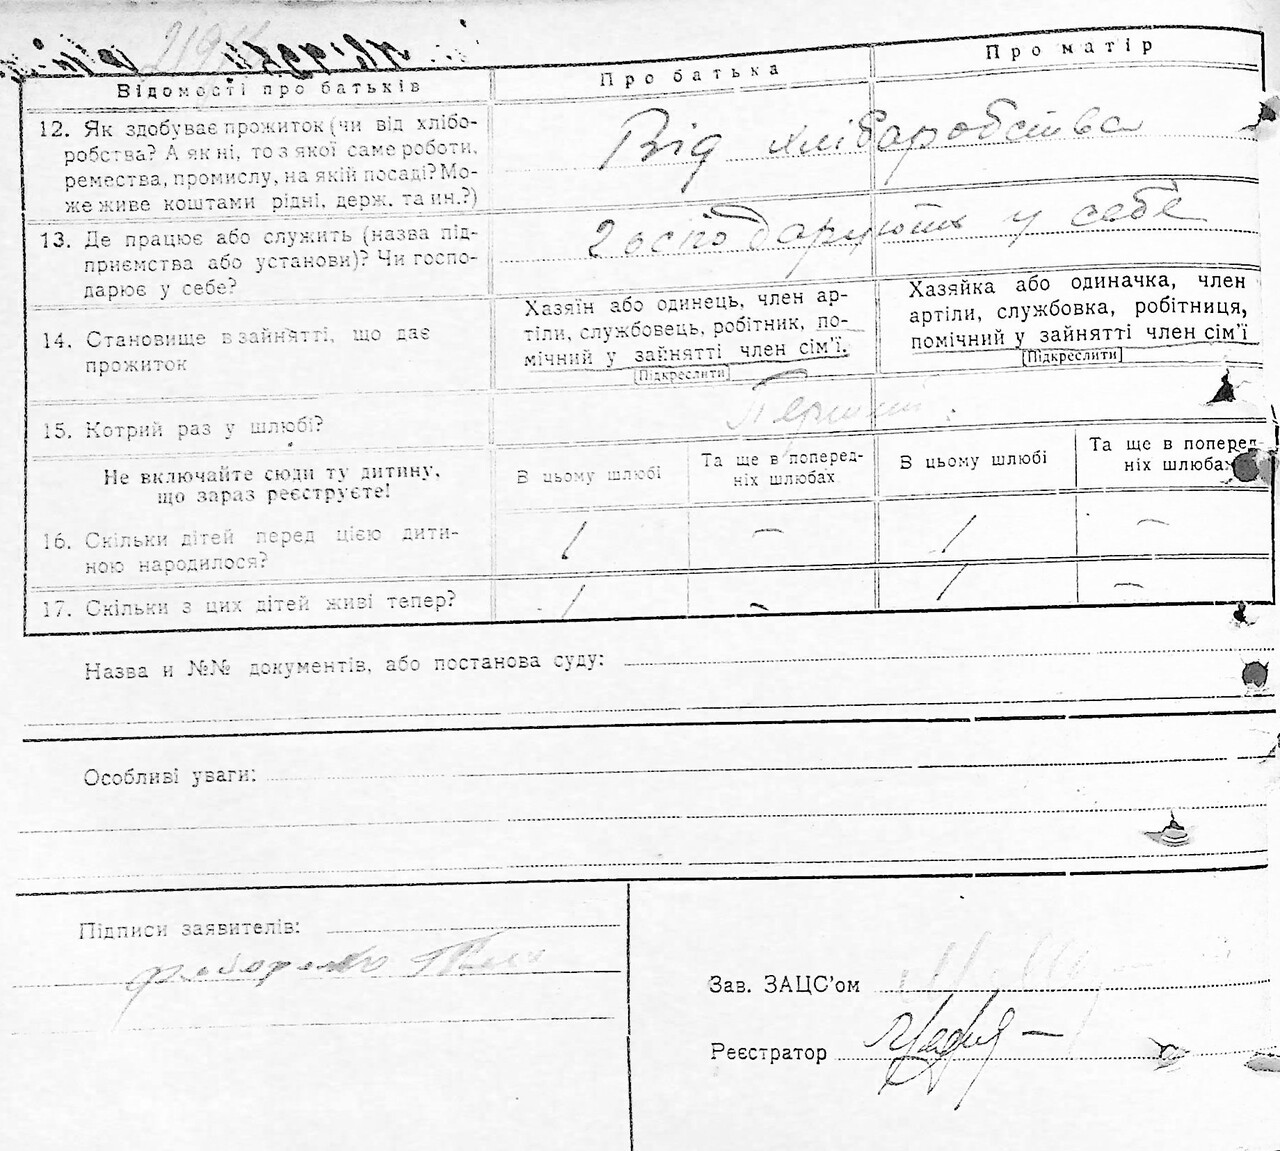 Відомості про батьків
Про батька
Про матір
12. Як здобуває прожиток (чи від хлібо-
робства? А як ні, то з якої саме роботи,
ремества, промислу, на якій посаді? Мо-
же живе коштами рідні, держ. та ин.?)
Від хлібаробства
13. Де працює або служить (назва під-
приємства або установи)? Чи госпо-
дарює у себе?
господарують у себе
14. Становище в зайнятті, що дає
прожиток
Хазяїн або одинець, член ар-
тіли, службовець, робітник, по-
мічний у зайнятті член сім'ї.
[Підкреслити]
Хазяйка або одиначка, член
артіли, службовка, робітниця,
помічний у зайнятті член сім'ї
[Підкреслити]
15. Котрий раз у шлюбі?
Перший
Не включайте сюди ту дитину,
що зараз реєструєте!
В цьому шлюбі
Та ще в поперед-
ніх шлюбах
В цьому шлюбі
Та ще в поперед-
ніх шлюбах
16. Скільки дітей перед цією дити-
ною народилося?
1 — 1 —
17. Скільки з цих дітей живі тепер?
1 — 1 —
Назва и №№ документів, або постанова суду:
Особливі уваги:
Підписи заявителів:
Зав. ЗАЦС'ом
Реєстратор